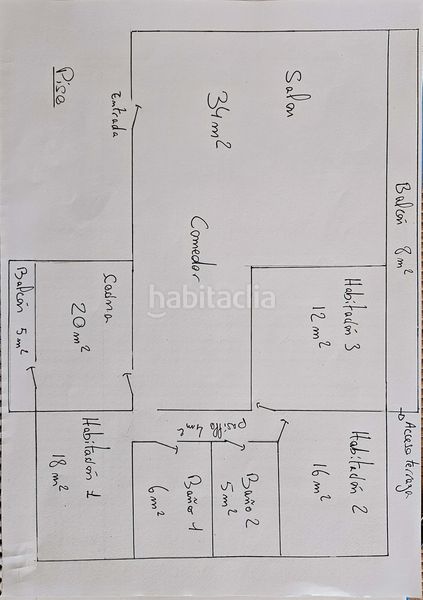 Piso
Entrada
Salon
34 m²
Comedor
Balcón 8 m²
Habitación 3
12 m²
Cocina
20 m²
Balcón 5 m²
Acceso terraza
Pasillo 4 m²
Habitación 2
16 m²
Baño 2
5 m²
Baño 1
6 m²
Habitación 1
18 m²
habitaclia